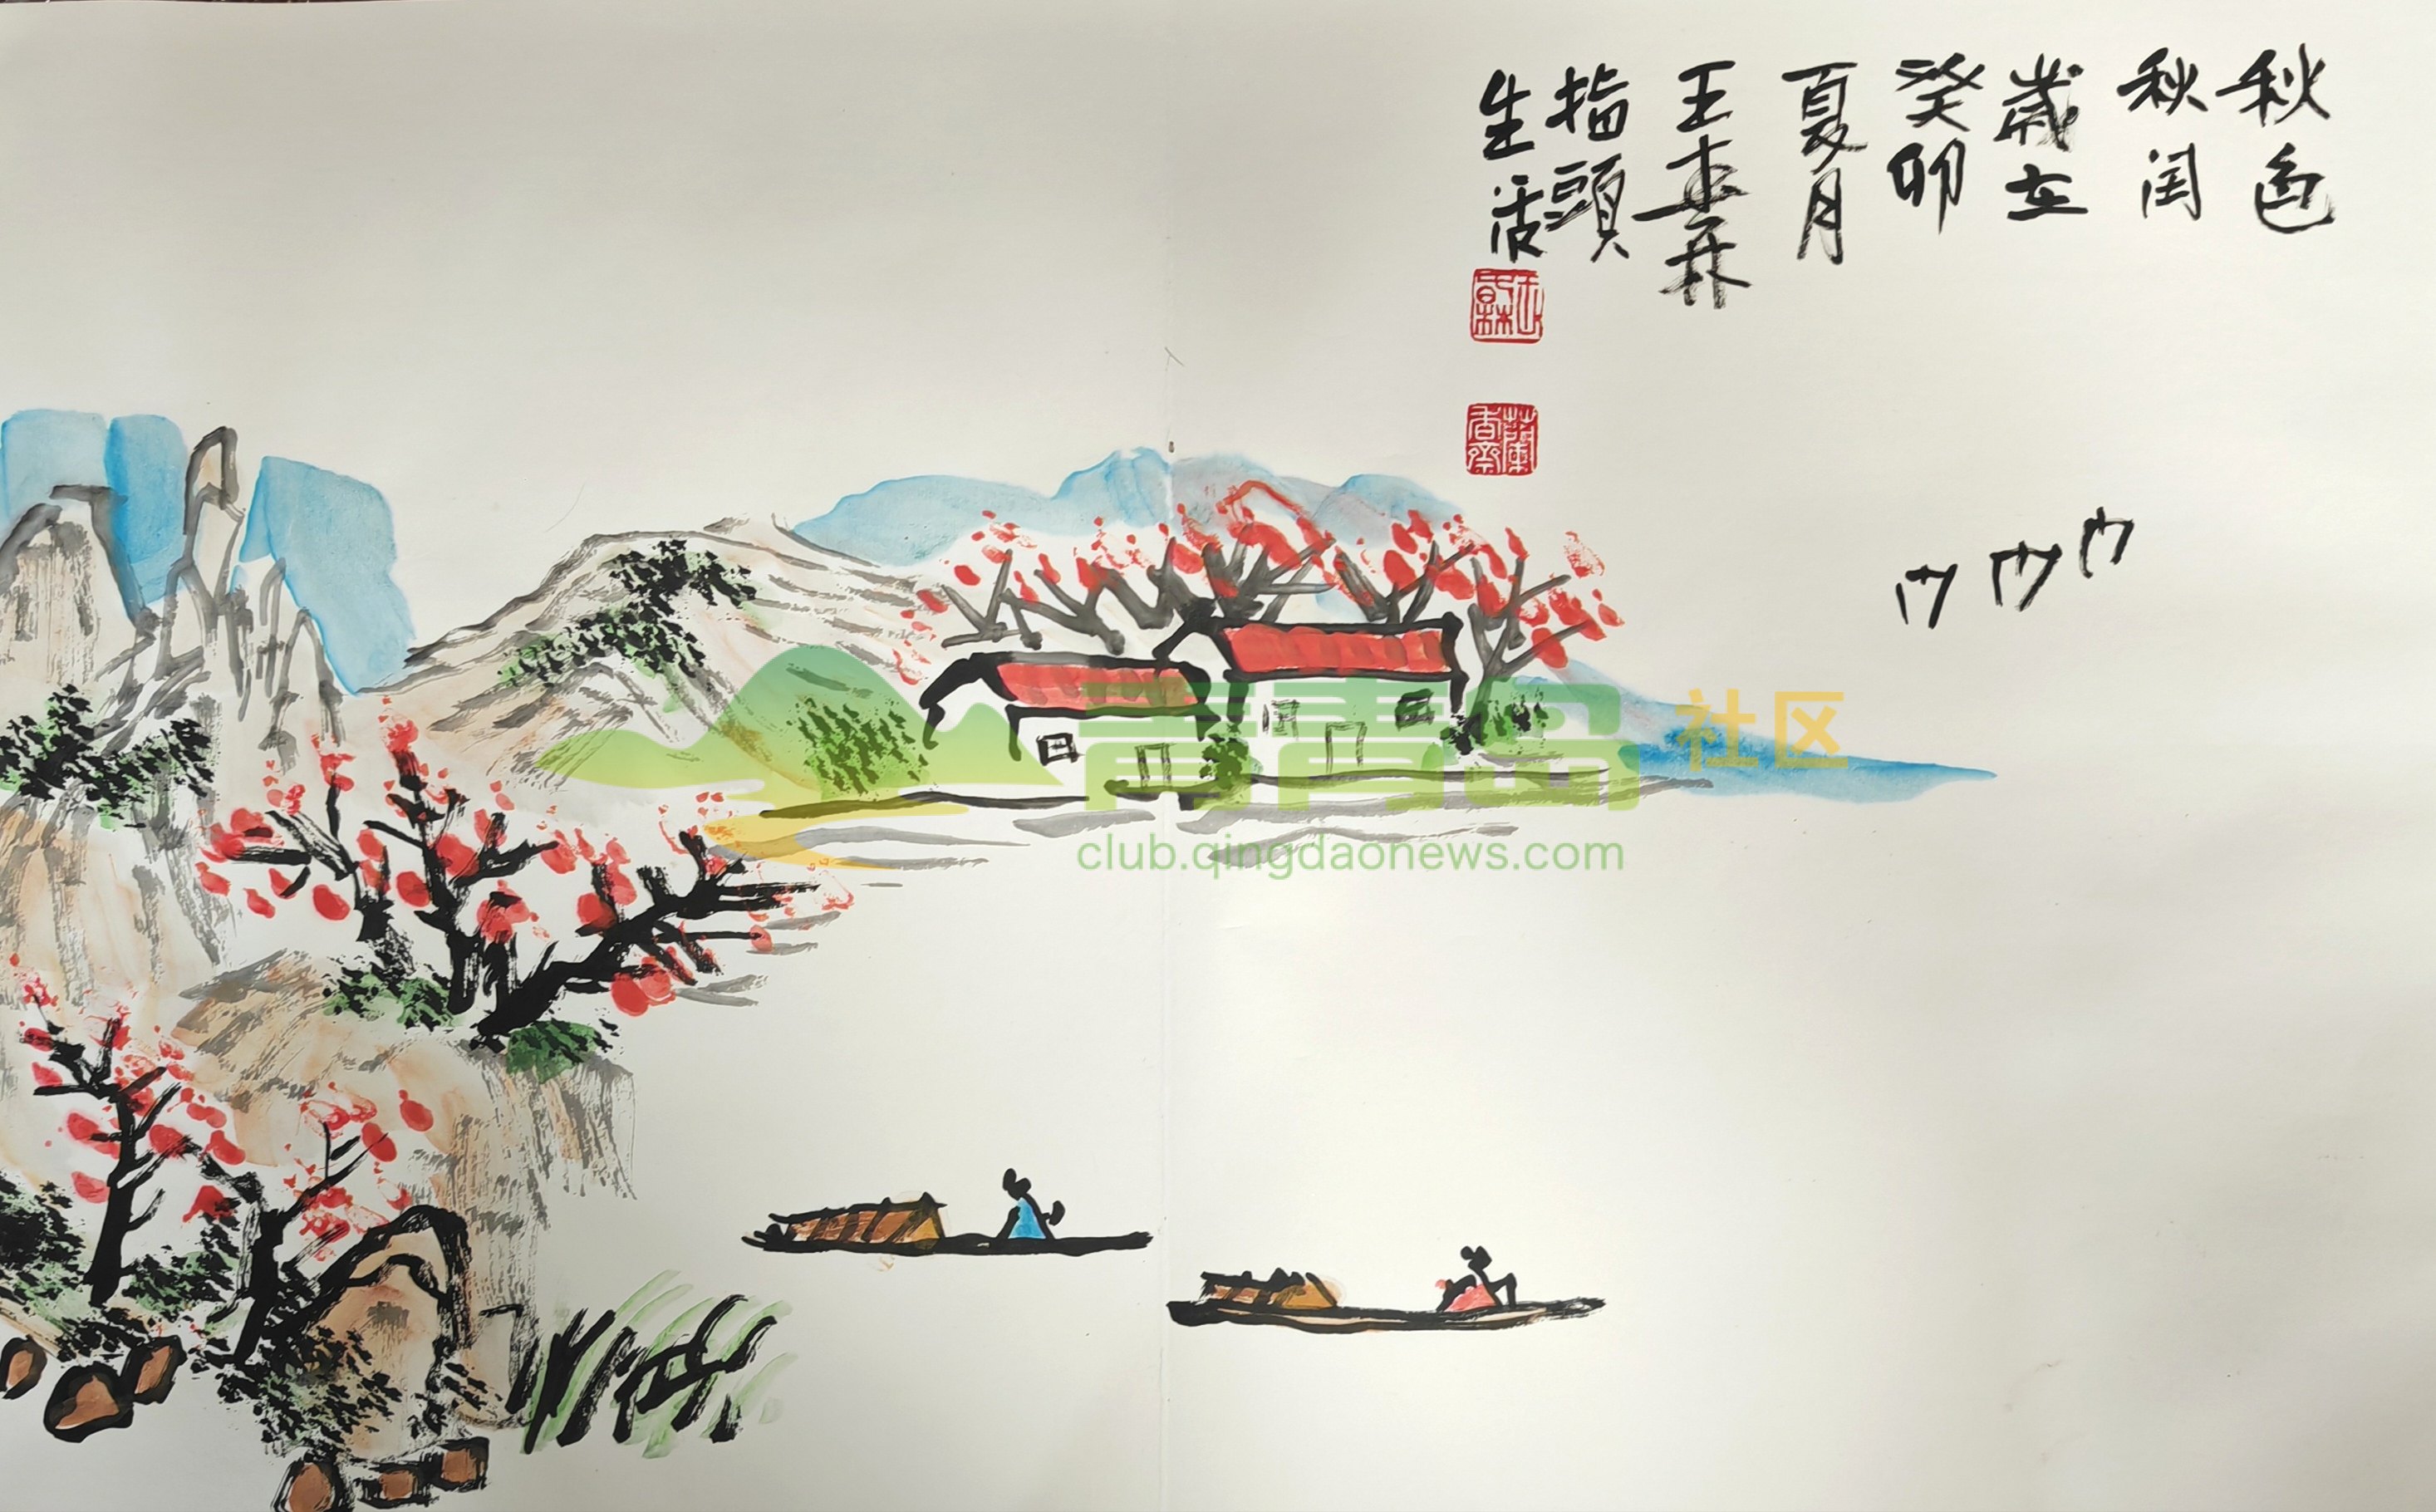 秋色
秋閏
歲在
癸卯
夏月
王
指頭
生活
蘭
香齋
青青岛 社区
club.qingdaonews.com